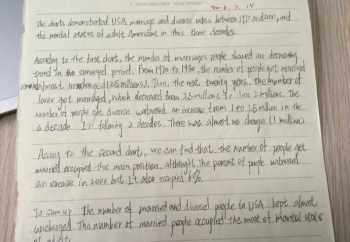 The charts demonstrated USA marriage and divorce rates between 1970 and 2000, and
the marital status of adult Americans in thus three decades.
According to the first chart, the number of marriages people showed an decreasing
trend in the surveyed period. From 1970 to 1980, the number of people get married
almost (2.5 millions). Then, the next twenty years. The number of
lover got married, which decreased from 2.5 millions to 2 millions. The
number of people who divorce witnessed an increase from 1 to 1.5 million in the
a decade. In following 2 decades. There was almost no change (1 million)
According to the second chart, we can find that, the number of people get
married occupied the main position, although the percent of people witnessed
an increase in 2000 but it also occupied
To sum up the number of married and divorced people in USA kept almost
unchanged. The number of married people occupied the most of marital status
of adults.